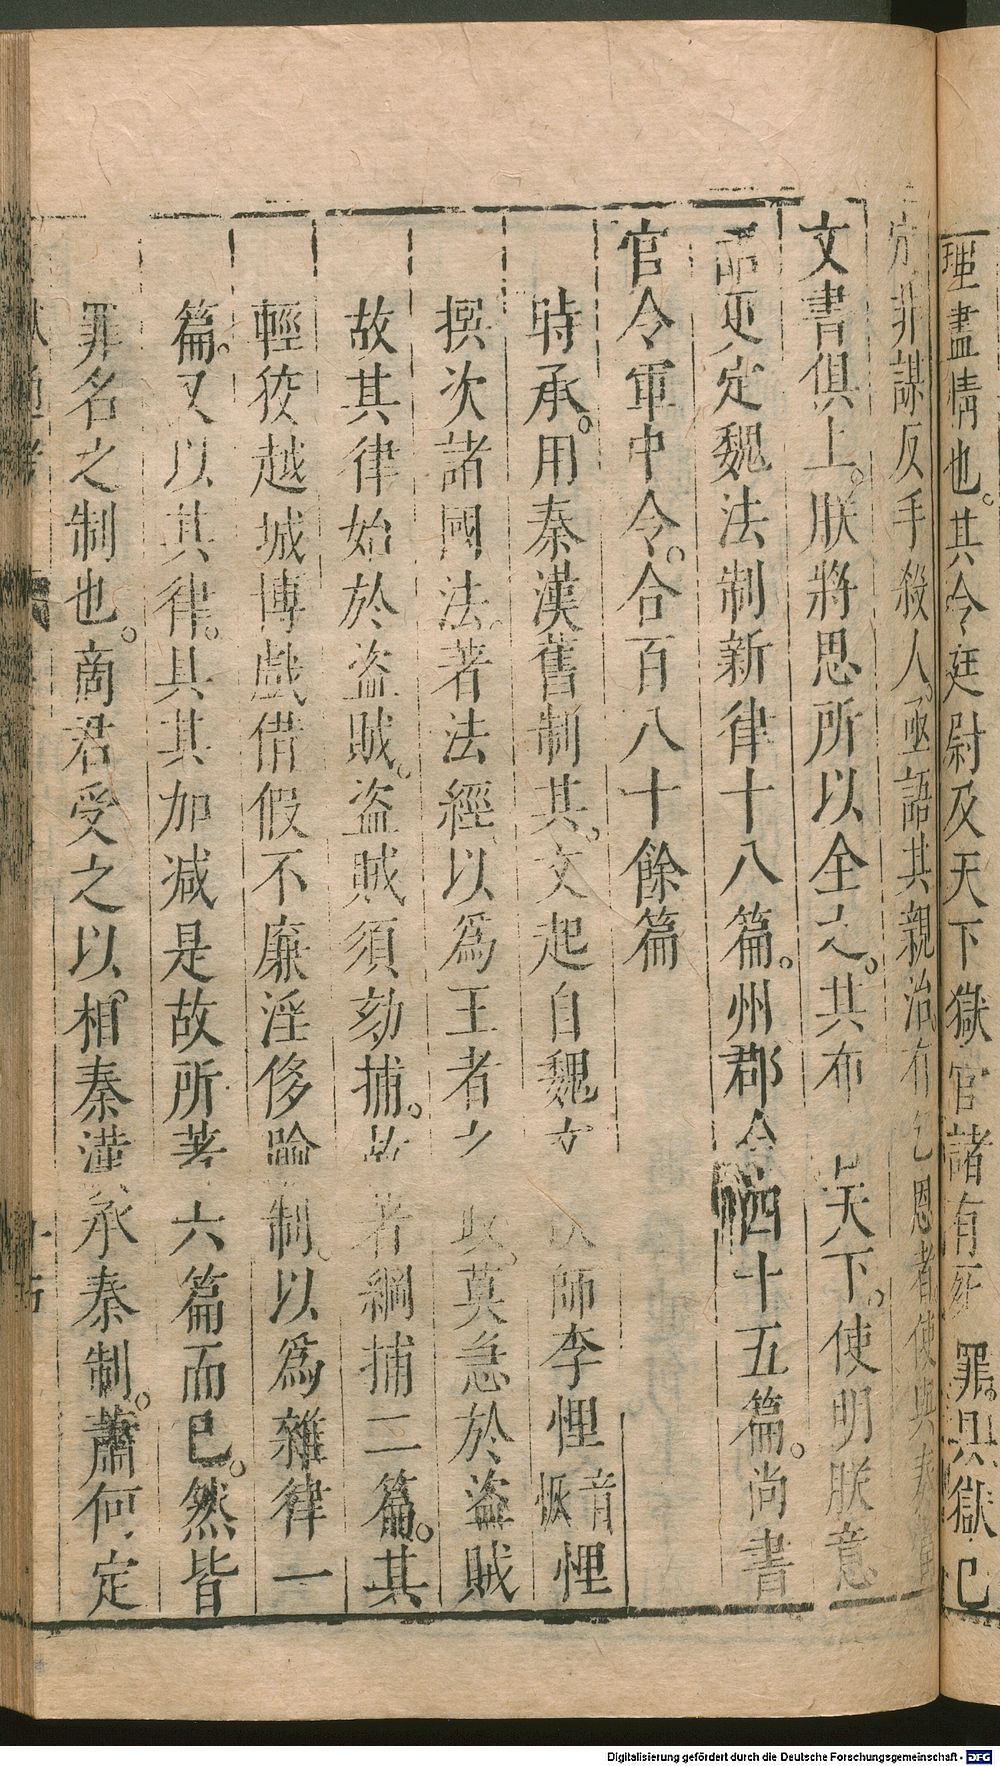 理盡情也其令廷尉及天下獄官諸有死罪具獄已
定非謀反手殺人亟語其親治有乞恩者使與奏當
文書俱上朕將思所以全之共布天下使明朕意
詔更定魏法制新律十八篇州郡令四十五篇尚書
官令軍中令合百八十餘篇
時承用秦漢舊制其文起自魏文師李悝音恢悝
撰次諸國法著法經以爲王者之政莫急於盜賊
故其律始於盜賊盜賊須劾捕故著網捕二篇其
輕狡越城博戲借假不廉淫侈踰制以爲雜律一
篇又以其律具其加減是故所著六篇而已然皆
罪名之制也商君受之以相秦漢承秦制蕭何定
Digitalisierung gefördert durch die Deutsche Forschungsgemeinschaft - DFG